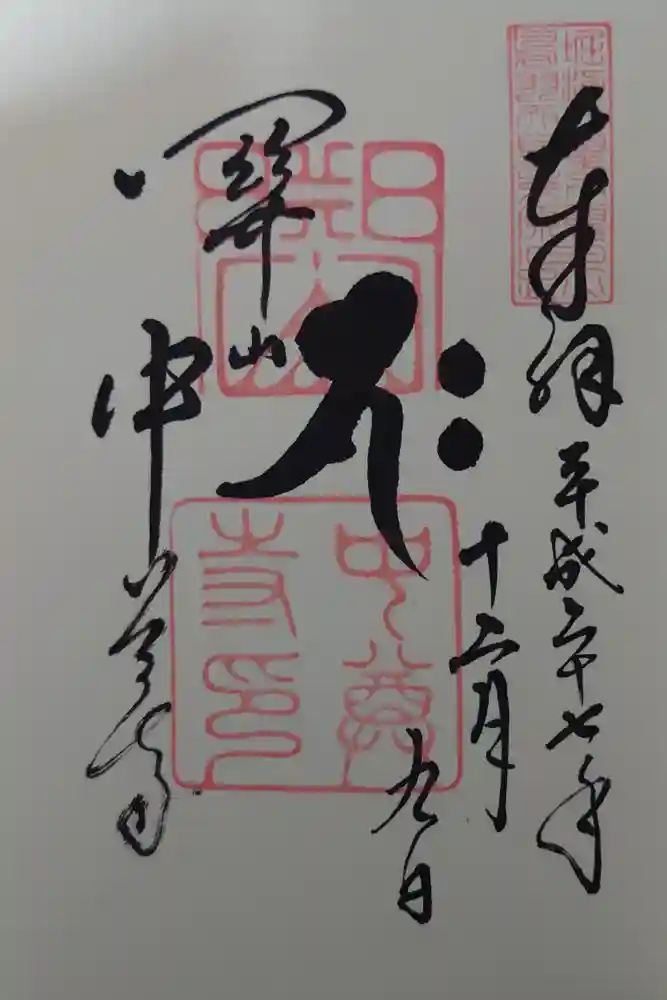 奉拝 平成二十七年
十二月
九日
關山
中尊寺
關山
中尊寺印